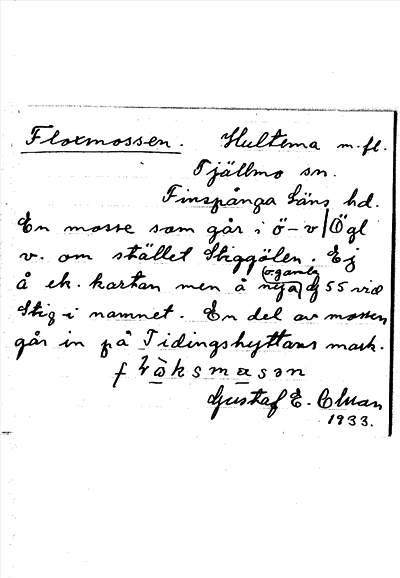 Floxmossen. Hultema m.fl.
Tjällmo sn.
Finspånga läns hd.
En mosse som går i ö–v | Ögl
v. om stället Stiggölen. Ej
(o. gamla)
å ek. kartan men å nya) bl 55 vid
Stig i namnet. En del av mossen
går in på Tidingshyttans mark.
Gustaf E. Ohman
1933.